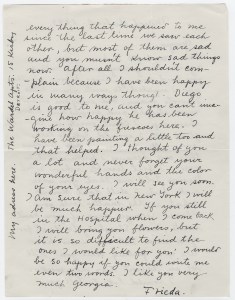 every thing that happened to me
since the last time we saw each
other, but most of them are sad
and you mustn't know sad things
now. After all I shouldn't com-
plain because I have been happy
in many ways though. Diego
is good to me, and you can't ima-
gine how happy he has been
working on the frescoes here. I
have been painting a little too and
that helped. I thought of you
a lot and never forget your
wonderful hands and the color
of your eyes. I will see you soon.
I am sure that in New York I will
be much happier. If you still
in the Hospital when I come back
I will bring you flowers, but
it is so difficult to find the
ones I would like for you. I would
be so happy if you could write me
even two words. I like you very
much Georgia.
Frieda.
My adress here The Wardell Apts. 15 Kirby
Detroit.